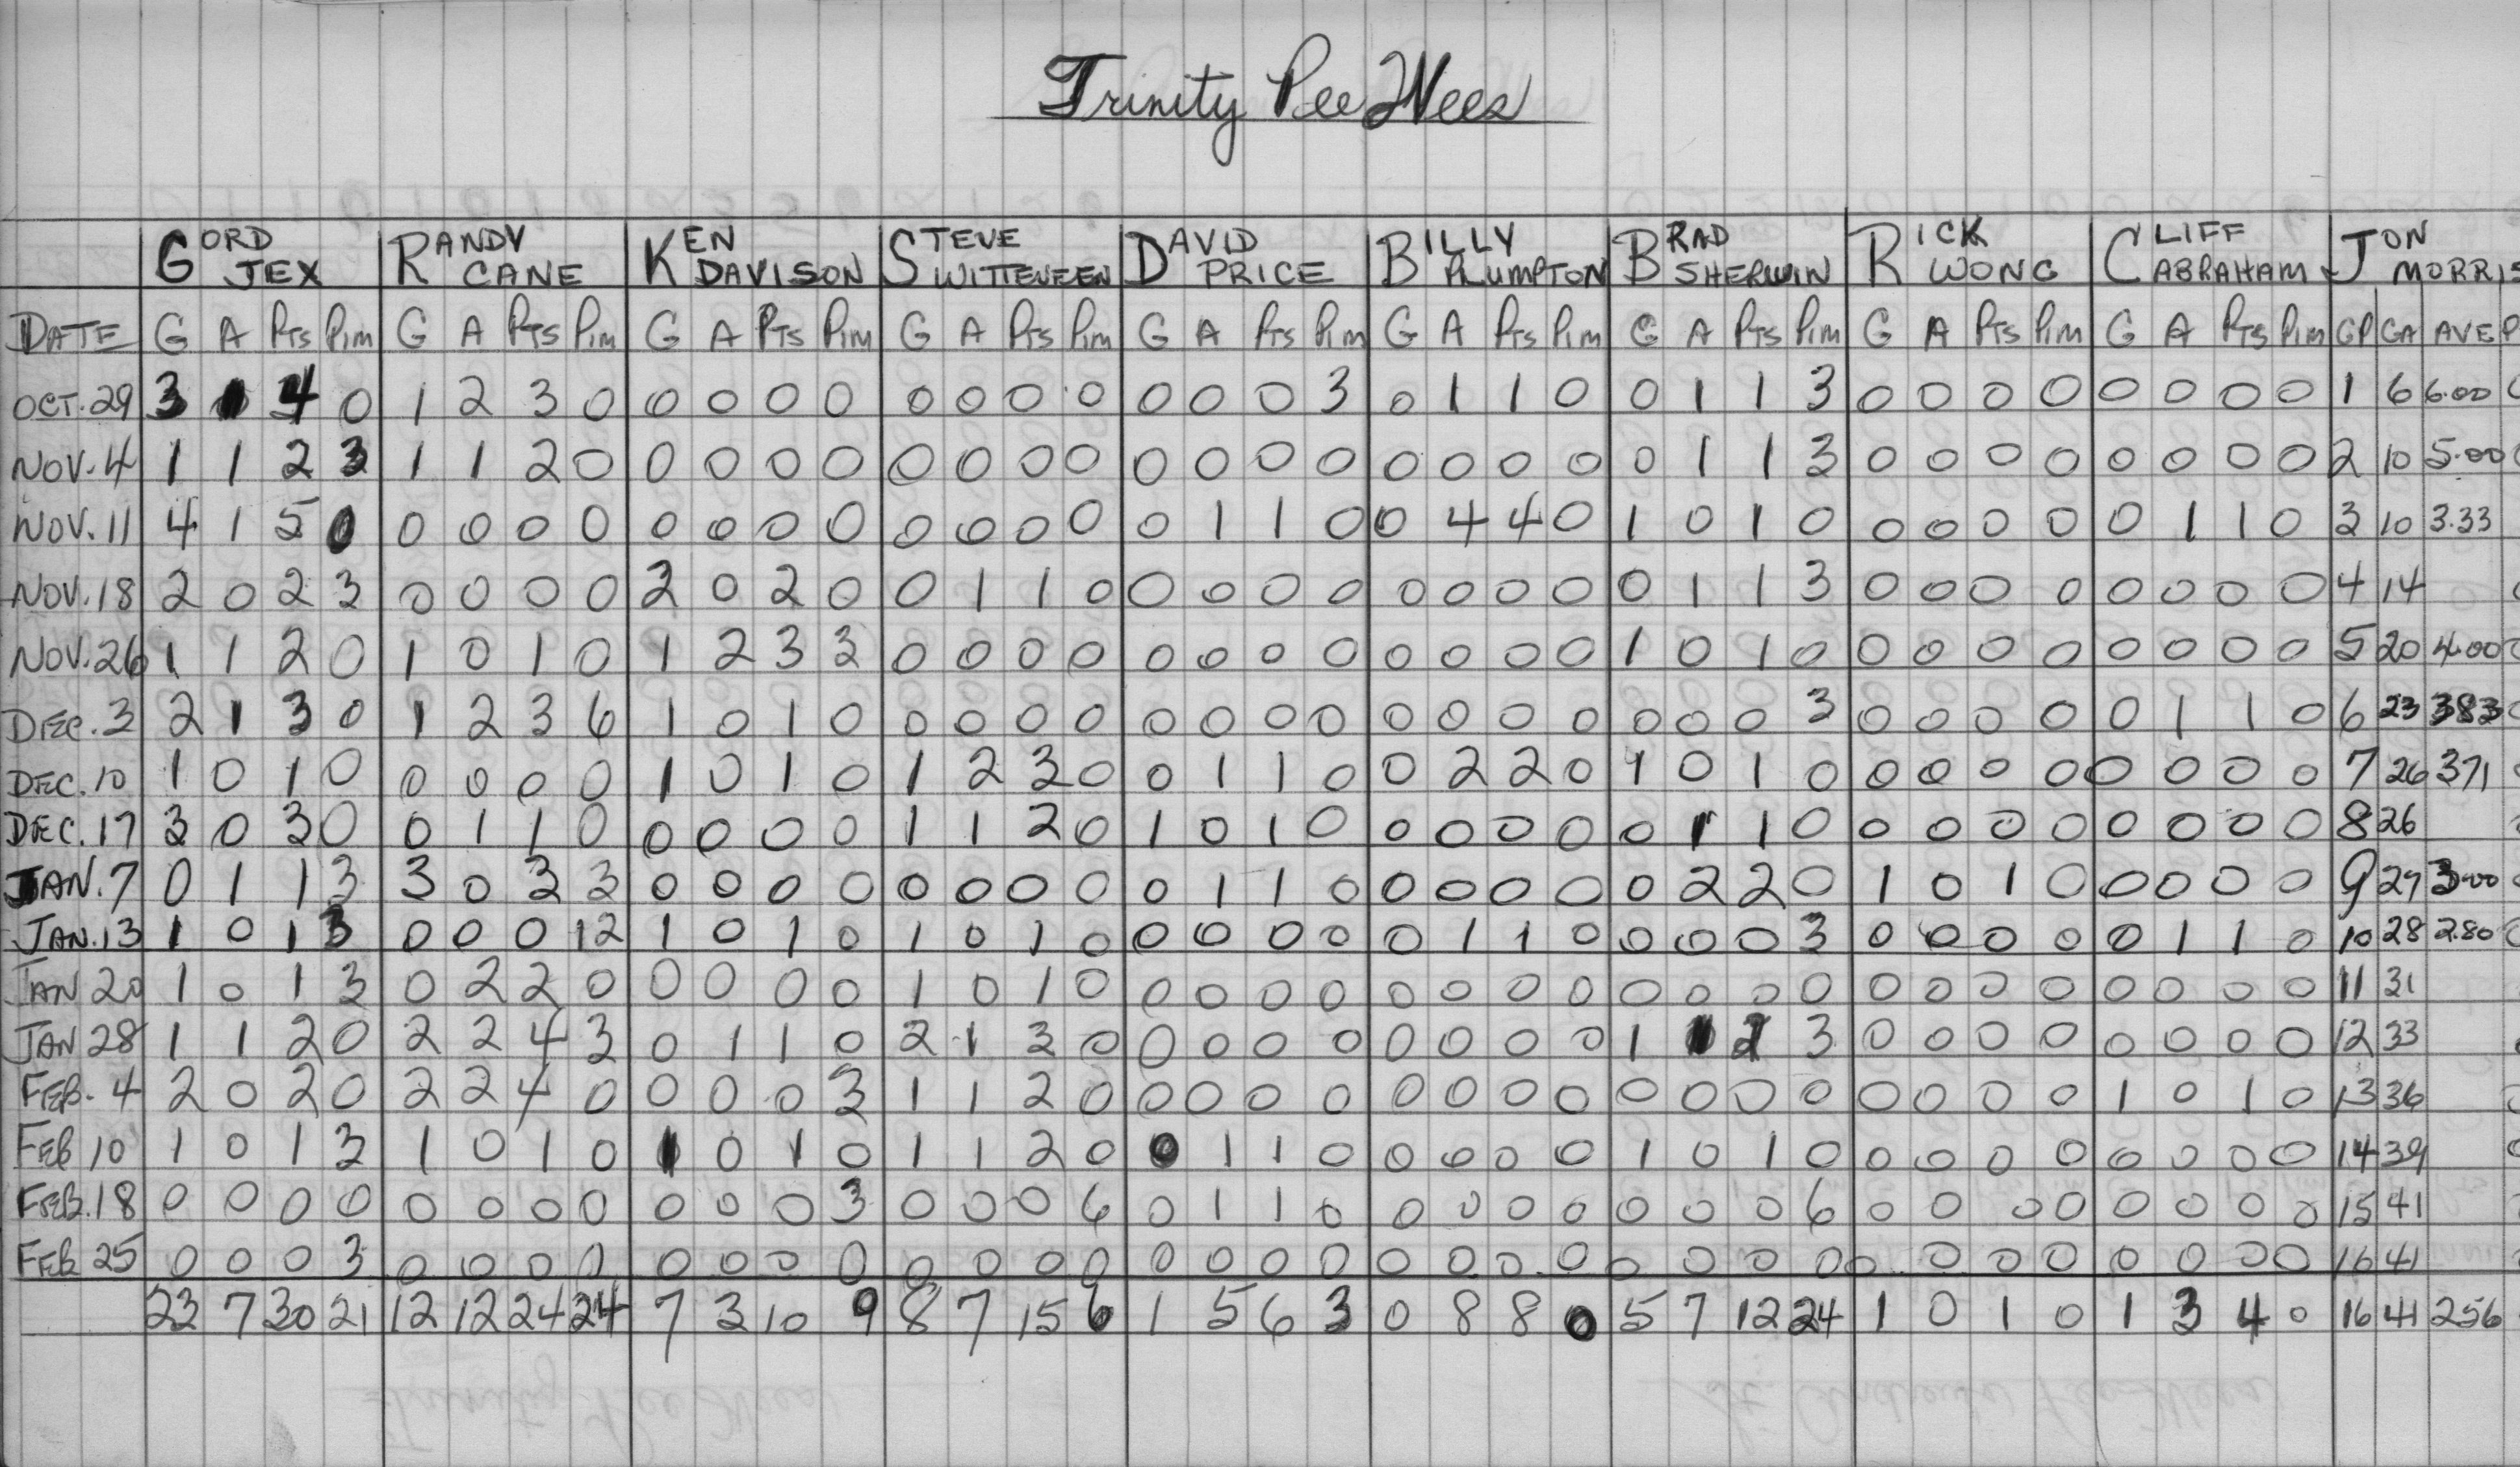 Trinity Pee Wees
GORD JEX RANDY CANE KEN DAVISON STEVE WITTEVEEN DAVID PRICE BILLY PLUMPTON BRAD SHERWIN RICK WONG CLIFF ABRAHAM JON MORRIS
DATE G A PTS PIM G A PTS PIM G A PTS PIM G A PTS PIM G A PTS PIM G A PTS PIM G A PTS PIM G A PTS PIM G A PTS PIM GP GA AVE P
OCT. 29 3 1 4 0 1 2 3 0 0 0 0 0 0 0 0 0 0 0 0 3 0 1 1 0 0 1 1 3 0 0 0 0 0 0 0 0 1 6 6.00
NOV. 4 1 1 2 3 1 1 2 0 0 0 0 0 0 0 0 0 0 0 0 0 0 0 0 0 0 1 1 3 0 0 0 0 0 0 0 0 2 10 5.00
NOV. 11 4 1 5 0 0 0 0 0 0 0 0 0 0 0 0 0 0 1 1 0 0 4 4 0 1 0 1 0 0 0 0 0 0 1 1 0 3 10 3.33
NOV. 18 2 0 2 3 0 0 0 0 2 0 2 0 0 1 1 0 0 0 0 0 0 0 0 0 0 1 1 3 0 0 0 0 0 0 0 0 4 14
NOV. 26 1 1 2 0 1 0 1 0 1 2 3 3 0 0 0 0 0 0 0 0 0 0 0 0 1 0 1 0 0 0 0 0 0 0 0 0 5 20 4.00
DEC. 3 2 1 3 0 1 2 3 6 1 0 1 0 0 0 0 0 0 0 0 0 0 0 0 0 0 0 0 3 0 0 0 0 0 1 1 0 6 23 383
DEC. 10 1 0 1 0 0 0 0 0 1 0 1 0 1 2 3 0 0 1 1 0 0 2 2 0 1 0 1 0 0 0 0 0 0 0 0 0 7 26 371
DEC. 17 3 0 3 0 0 1 1 0 0 0 0 0 1 1 2 0 1 0 1 0 0 0 0 0 0 1 1 0 0 0 0 0 0 0 0 0 8 26
JAN. 7 0 1 1 3 3 0 3 3 0 0 0 0 0 0 0 0 0 1 1 0 0 0 0 0 0 2 2 0 1 0 1 0 0 0 0 0 9 27 3.00
JAN. 13 1 0 1 3 0 0 0 12 1 0 1 0 1 0 1 0 0 0 0 0 0 1 1 0 0 0 0 3 0 0 0 0 0 1 1 0 10 28 2.80
JAN 20 1 0 1 3 0 2 2 0 0 0 0 0 1 0 1 0 0 0 0 0 0 0 0 0 0 0 0 0 0 0 0 0 0 0 0 0 11 31
JAN 28 1 1 2 0 2 2 4 3 0 1 1 0 2 1 3 0 0 0 0 0 0 0 0 0 1 1 2 3 0 0 0 0 0 0 0 0 12 33
FEB. 4 2 0 2 0 2 2 4 0 0 0 0 3 1 1 2 0 0 0 0 0 0 0 0 0 0 0 0 0 0 0 0 0 1 0 1 0 13 36
FEB 10 1 0 1 3 1 0 1 0 1 0 1 0 1 1 2 0 0 1 1 0 0 0 0 0 1 0 1 0 0 0 0 0 0 0 0 0 14 39
FEB. 18 0 0 0 0 0 0 0 0 0 0 0 3 0 0 0 6 0 1 1 0 0 0 0 0 0 0 0 6 0 0 0 0 0 0 0 0 15 41
FEB 25 0 0 0 3 0 0 0 0 0 0 0 0 0 0 0 0 0 0 0 0 0 0 0 0 0 0 0 0 0 0 0 0 0 0 0 0 16 41
23 7 30 21 12 12 24 24 7 3 10 9 8 7 15 6 1 5 6 3 0 8 8 0 5 7 12 24 1 0 1 0 1 3 4 0 16 41 256